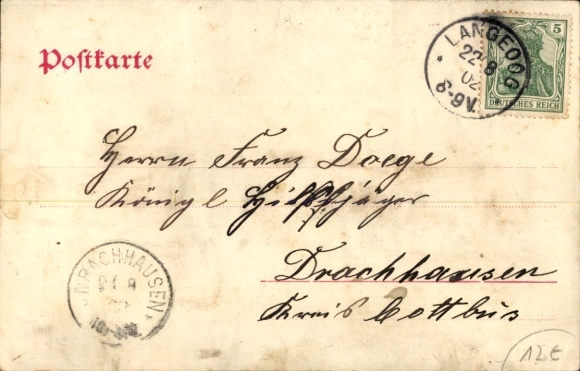 Postkarte
LANGEOOG
22 8
02
8-9V.
5
DEUTSCHES REICH
Herrn Franz Doege
Königl Hilfsjäger
Drachhausen
Kreis Cottbus
DRACHHAUSEN
12€